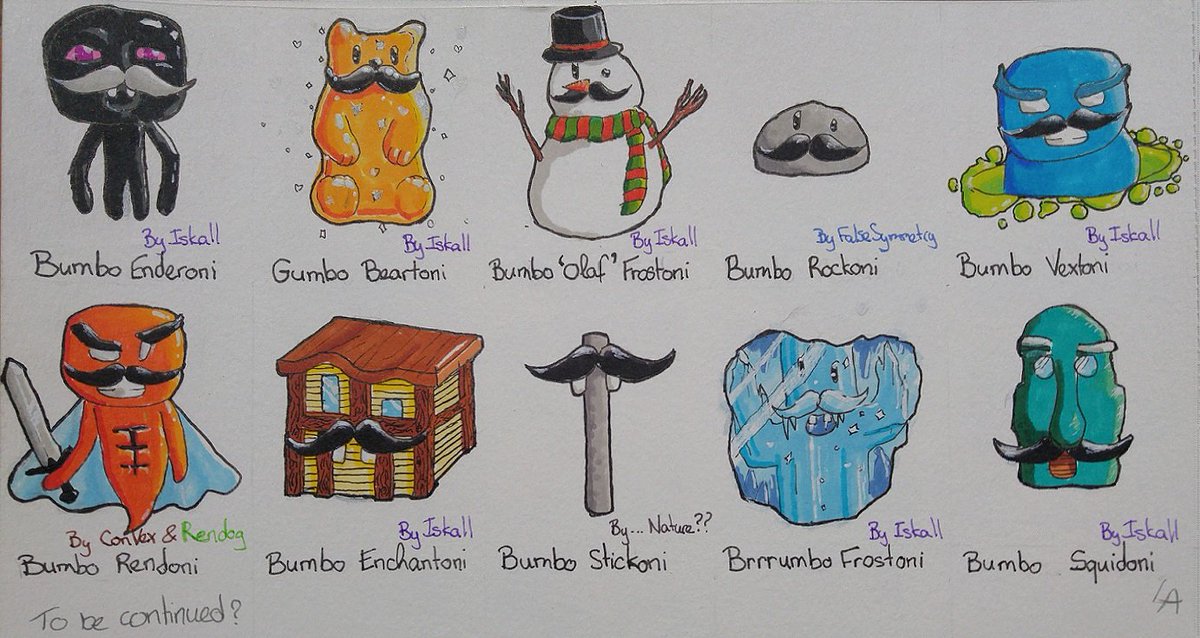 By Iskall
Bumbo Enderoni
By Iskall
Gumbo Beartoni
By Iskall
Bumbo 'Olaf' Frostoni
By FalseSymmetry
Bumbo Rockoni
By Iskall
Bumbo Vextoni
By ConVex & Rendog
Bumbo Rendoni
By Iskall
Bumbo Enchantoni
By... Nature??
Bumbo Stickoni
By Iskall
Brrrumbo Frostoni
By Iskall
Bumbo Squidoni
To be continued?